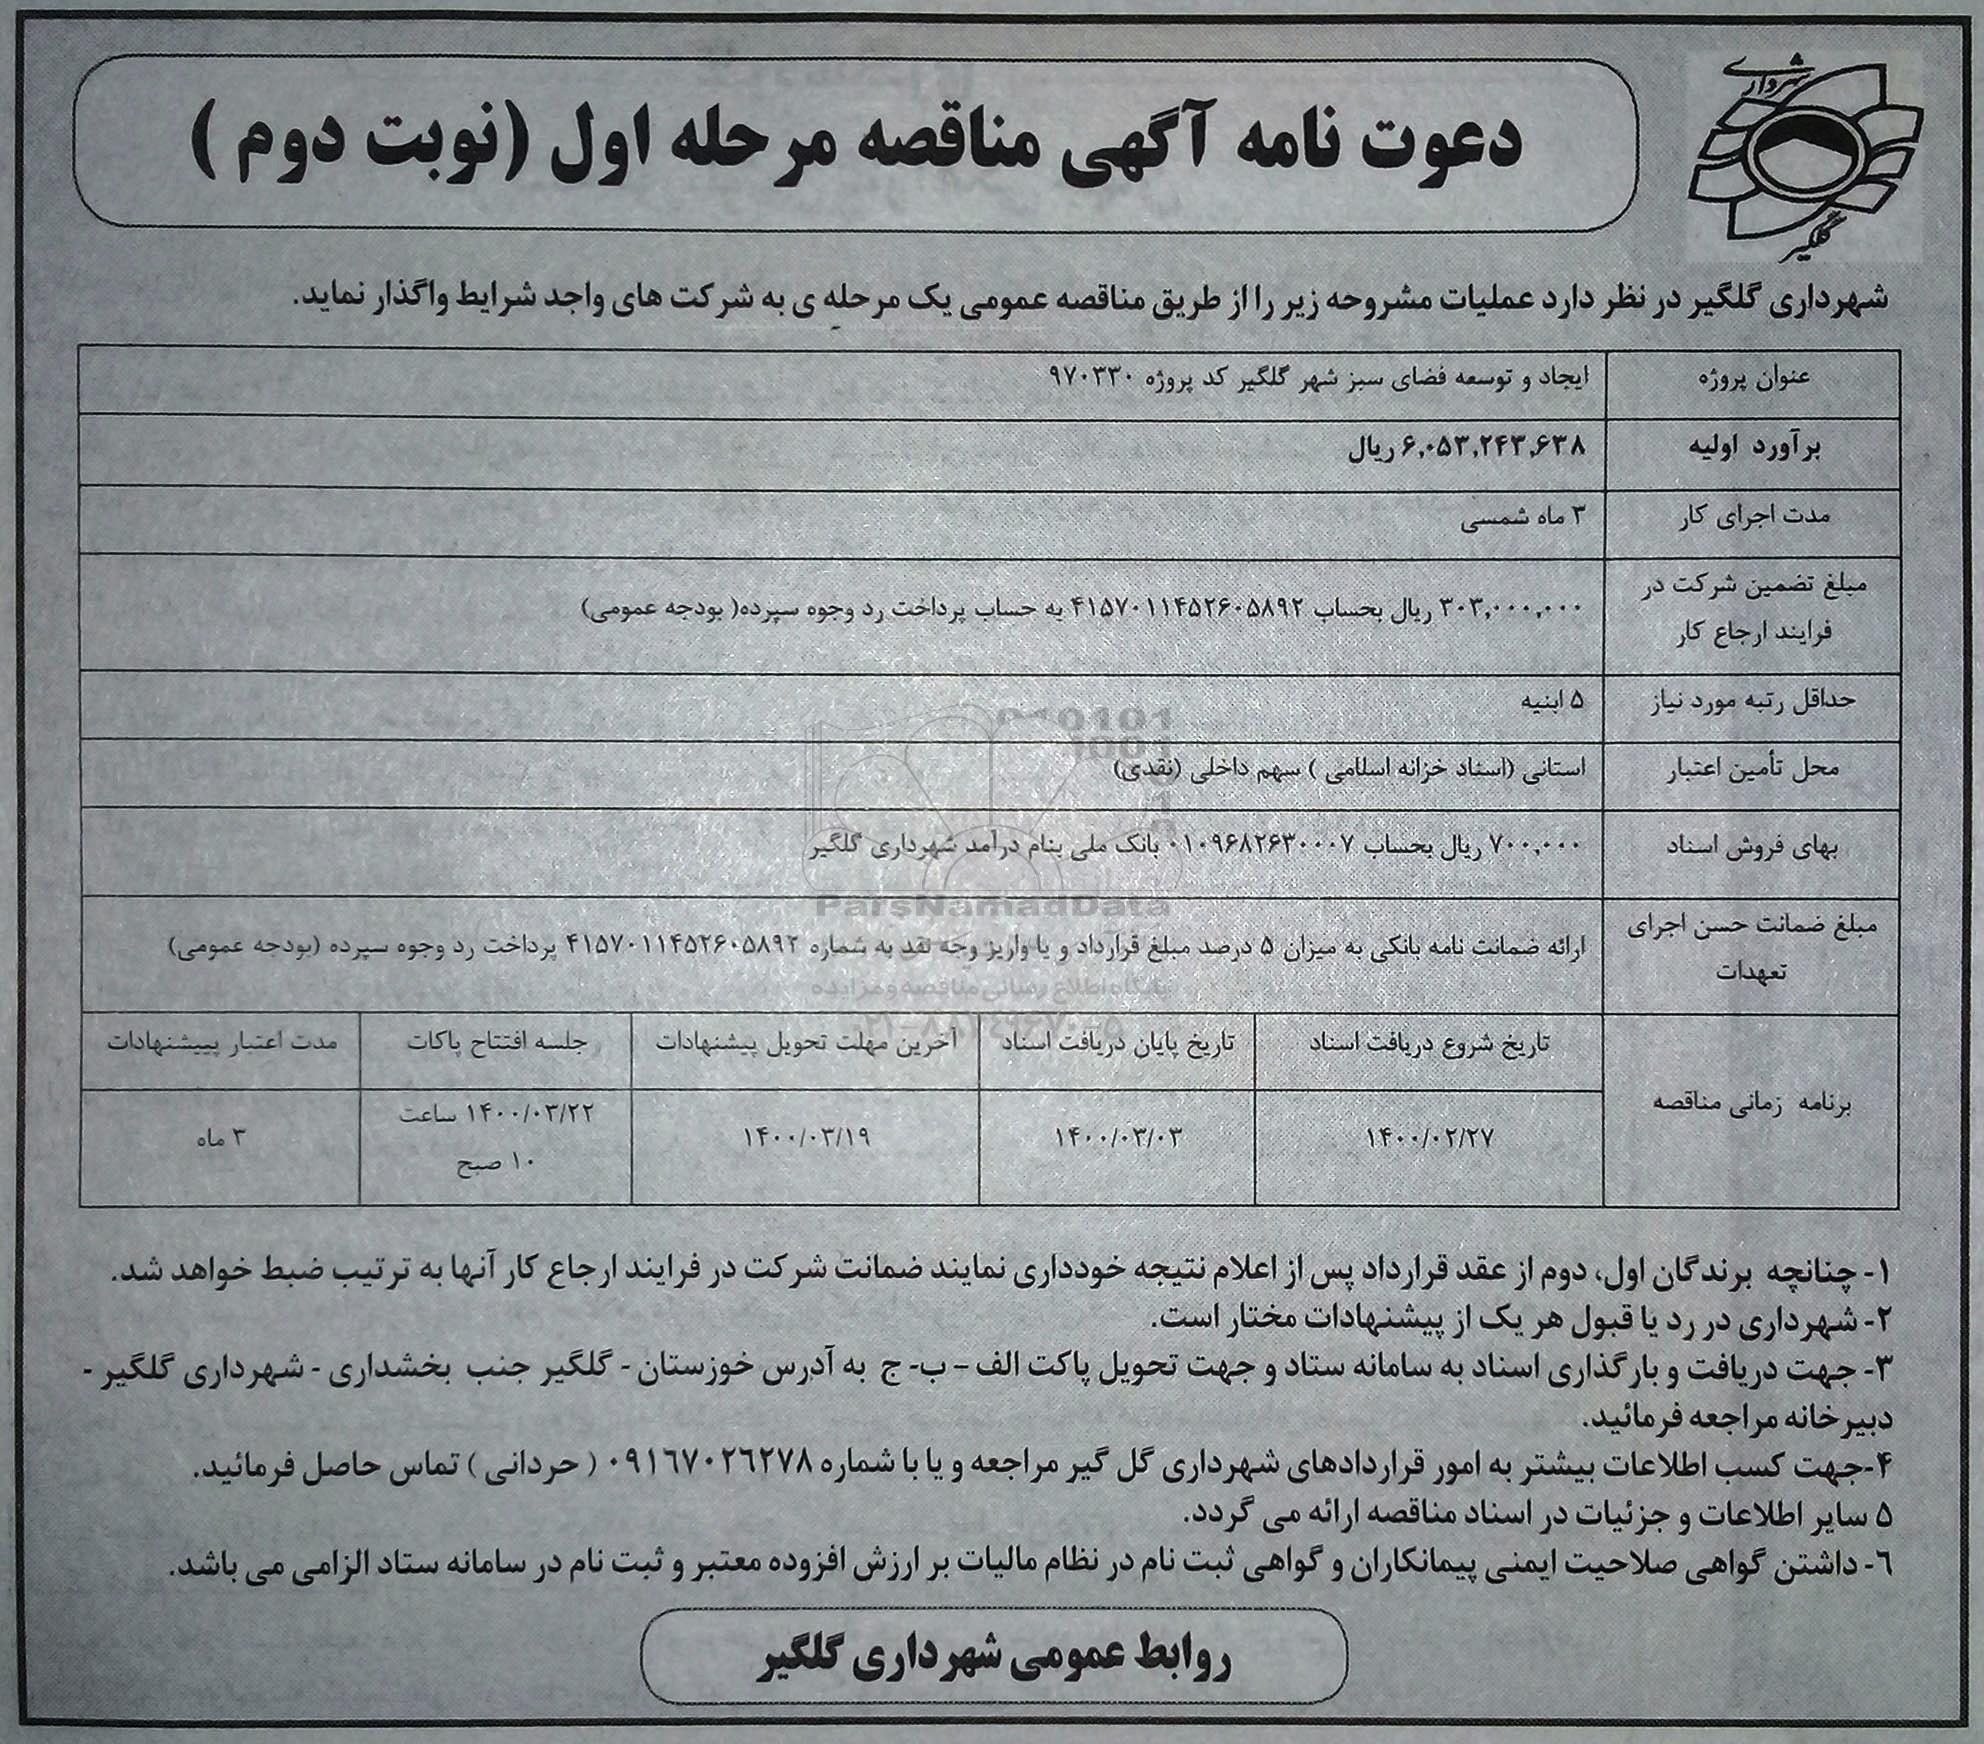 شهرداری
گلگیر
دعوت نامه آگهی مناقصه مرحله اول (نوبت دوم )
شهرداری گلگیر در نظر دارد عملیات مشروحه زیر را از طریق مناقصه عمومی یک مرحله ی به شرکت های واجد شرایط واگذار نماید.
عنوان پروژه
ایجاد و توسعه فضای سبز شهر گلگیر کد پروژه ۹۷۰۳۳۰
برآورد اولیه
۶,۰۵۳,۲۴۳,۶۳۸ ریال
مدت اجرای کار
۳ ماه شمسی
مبلغ تضمین شرکت در
فرایند ارجاع کار
۳۰۳,۰۰۰,۰۰۰ ریال بحساب ۴۱۵۷۰۱۱۴۵۲۶۰۵۸۹۲ به حساب پرداخت رد وجوه سپرده( بودجه عمومی)
حداقل رتبه مورد نیاز
۵ ابنیه
محل تأمین اعتبار
استانی (اسناد خزانه اسلامی ) سهم داخلی (نقدی)
بهای فروش اسناد
۷۰۰,۰۰۰ ریال بحساب ۰۱۰۹۶۸۲۶۳۰۰۰۷ بانک ملی بنام درآمد شهرداری گلگیر
مبلغ ضمانت حسن اجرای
تعهدات
ارائه ضمانت نامه بانکی به میزان ۵ درصد مبلغ قرارداد و یا واریز وجه نقد به شماره ۴۱۵۷۰۱۱۴۵۲۶۰۵۸۹۲ پرداخت رد وجوه سپرده (بودجه عمومی)
برنامه زمانی مناقصه
تاریخ شروع دریافت اسناد
تاریخ پایان دریافت اسناد
آخرین مهلت تحویل پیشنهادات
جلسه افتتاح پاکات
مدت اعتبار پییشنهادات
۱۴۰۰/۰۲/۲۷
۱۴۰۰/۰۳/۰۳
۱۴۰۰/۰۳/۱۹
۱۴۰۰/۰۳/۲۲ ساعت
۱۰ صبح
۳ ماه
ParsNamadData
پایگاه اطلاع رسانی مناقصه و مزایده
۰۲۱-۸۸۳۴۹۶۷۰-۵
۱- چنانچه برندگان اول، دوم از عقد قرارداد پس از اعلام نتیجه خودداری نمایند ضمانت شرکت در فرایند ارجاع کار آنها به ترتیب ضبط خواهد شد.
۲- شهرداری در رد یا قبول هر یک از پیشنهادات مختار است.
۳- جهت دریافت و بارگذاری اسناد به سامانه ستاد و جهت تحویل پاکت الف – ب- ج به آدرس خوزستان - گلگیر جنب بخشداری - شهرداری گلگیر -
دبیرخانه مراجعه فرمائید.
۴-جهت کسب اطلاعات بیشتر به امور قراردادهای شهرداری گل گیر مراجعه و یا با شماره ۰۹۱۶۷۰۲۶۲۷۸ ( حردانی ) تماس حاصل فرمائید.
۵ سایر اطلاعات و جزئیات در اسناد مناقصه ارائه می گردد.
۶- داشتن گواهی صلاحیت ایمنی پیمانکاران و گواهی ثبت نام در نظام مالیات بر ارزش افزوده معتبر و ثبت نام در سامانه ستاد الزامی می باشد.
روابط عمومی شهرداری گلگیر